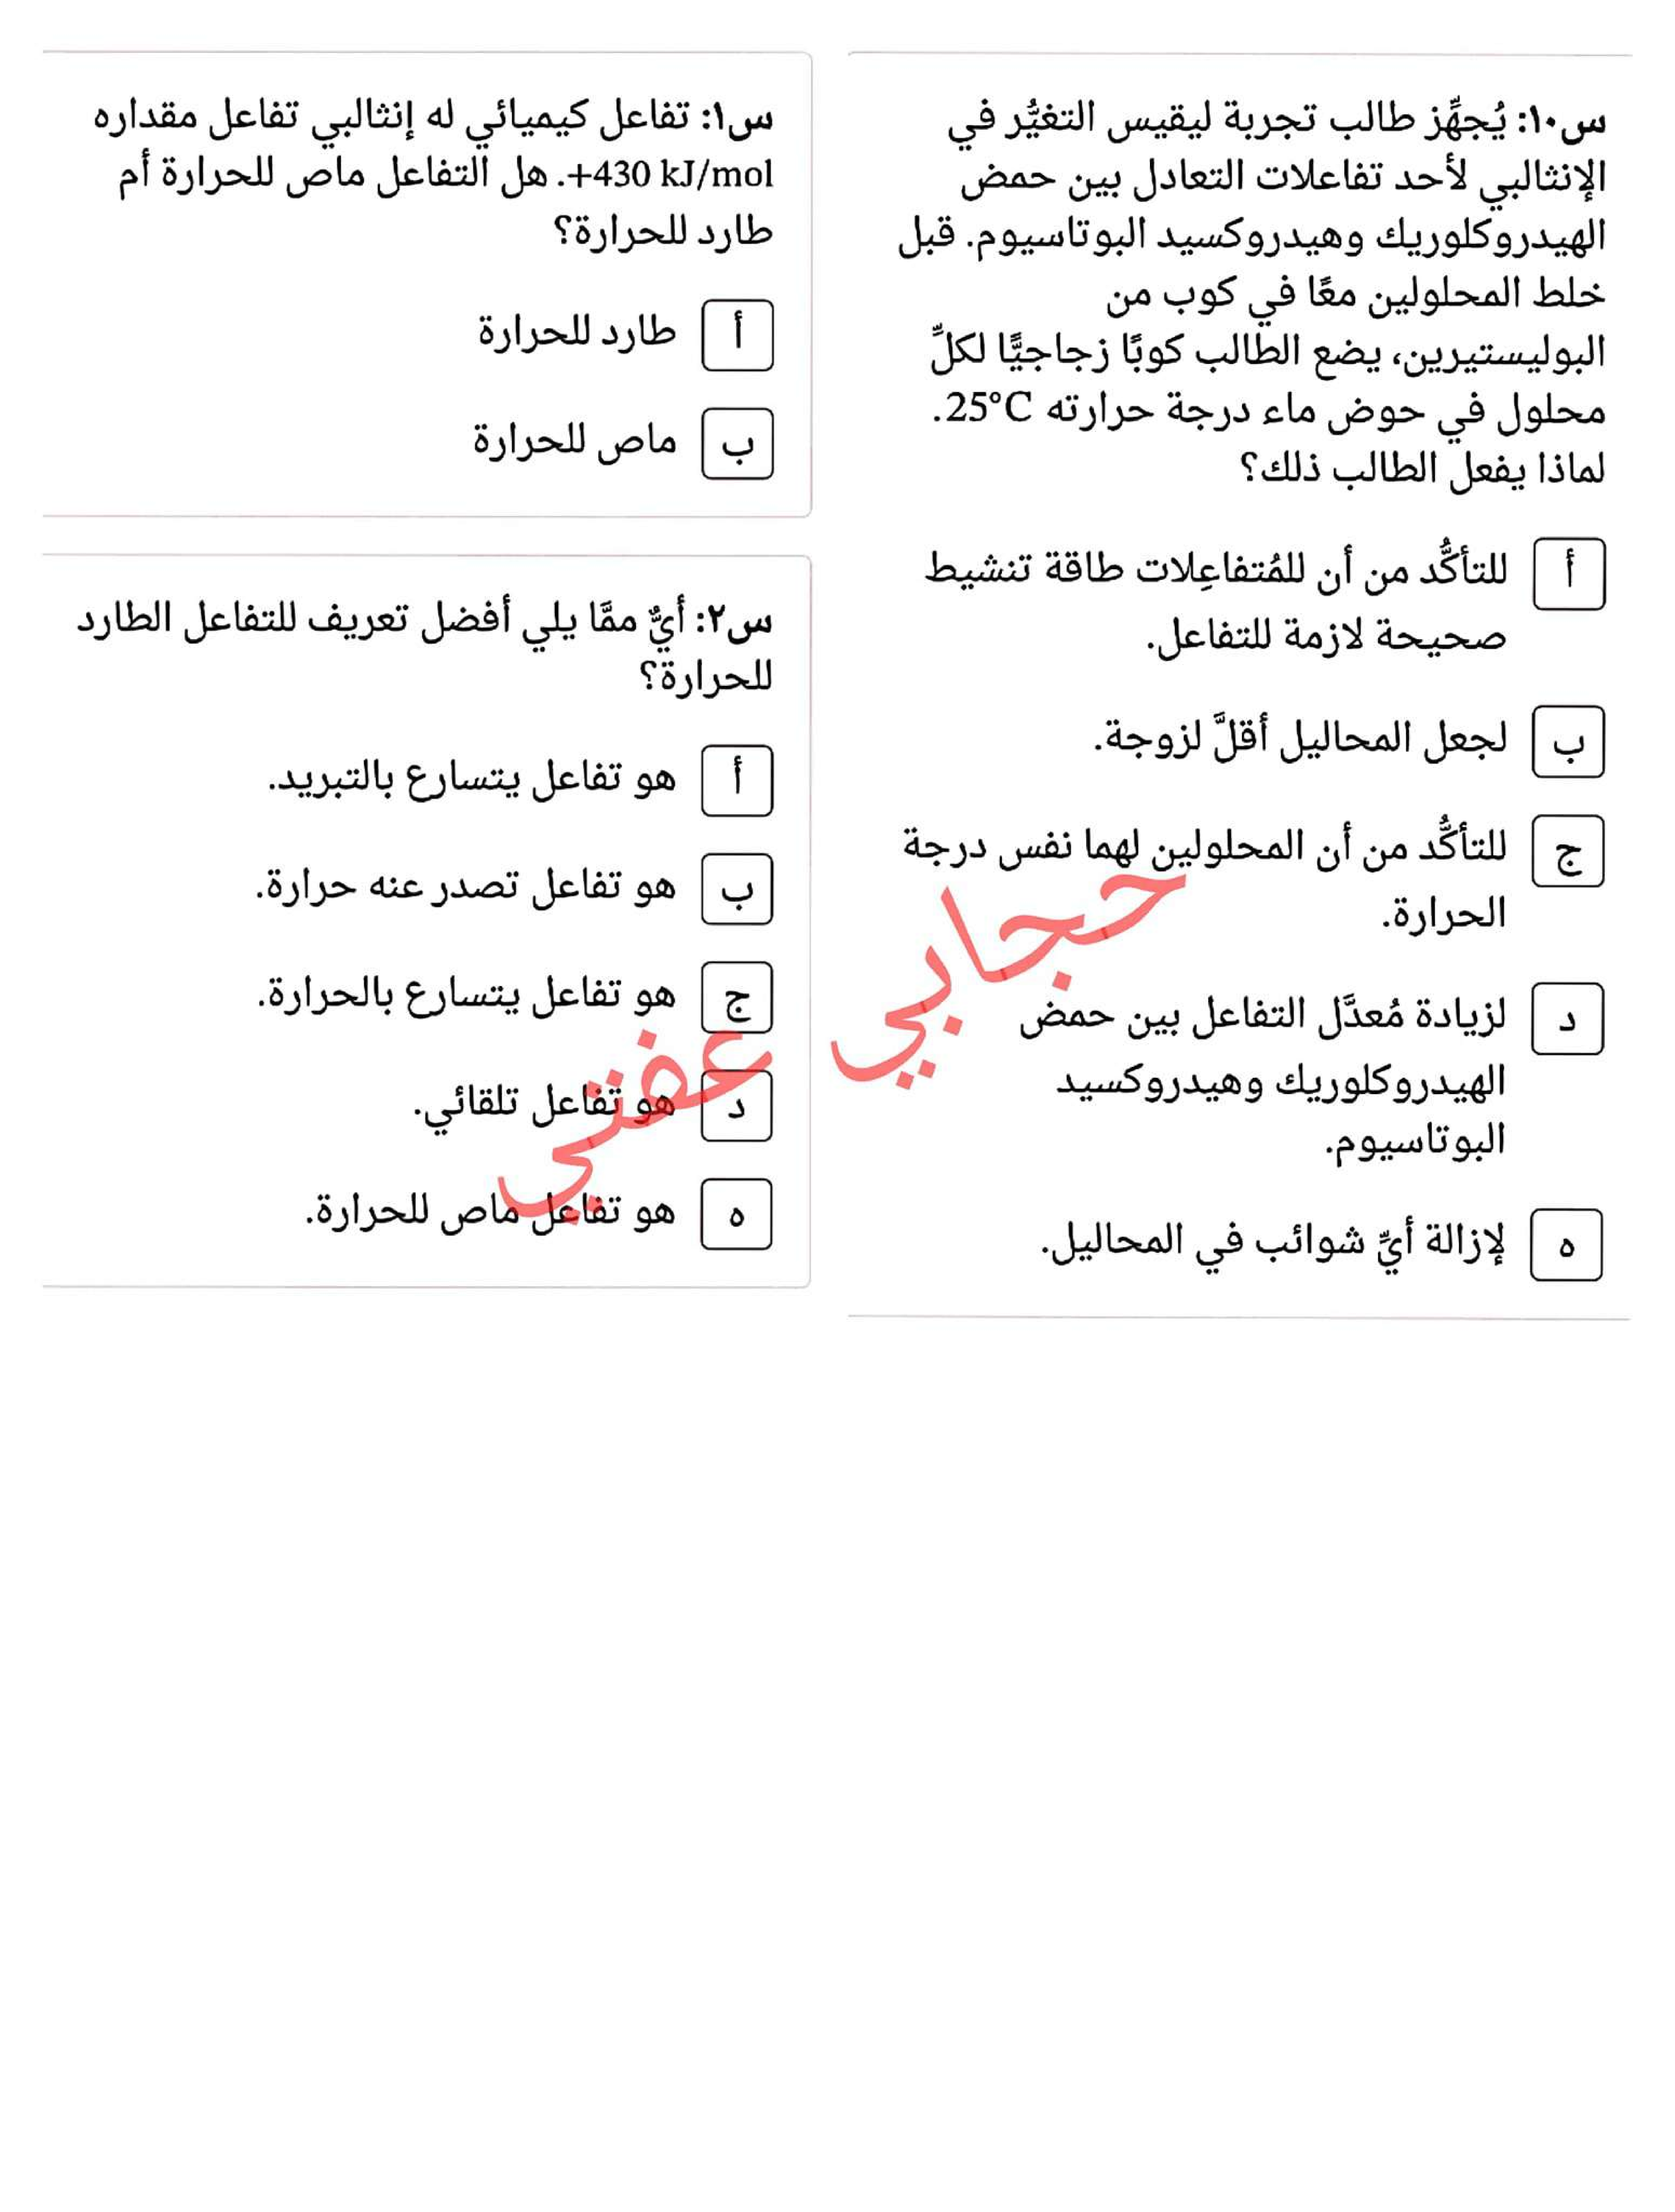 س١٠: يُجهِّز طالب تجربة ليقيس التغيُّر في
الإنثالبي لأحد تفاعلات التعادل بين حمض
الهيدروكلوريك وهيدروكسيد البوتاسيوم. قبل
خلط المحلولين معًا في كوب من
البوليستيرين، يضع الطالب كوبًا زجاجيًّا لكلِّ
محلول في حوض ماء درجة حرارته 25°C.
لماذا يفعل الطالب ذلك؟
أ للتأكُّد من أن للمُتفاعِلات طاقة تنشيط
صحيحة لازمة للتفاعل.
ب لجعل المحاليل أقلَّ لزوجة.
ج للتأكُّد من أن المحلولين لهما نفس درجة
الحرارة.
د لزيادة مُعدَّل التفاعل بين حمض
الهيدروكلوريك وهيدروكسيد
البوتاسيوم.
ه لإزالة أيِّ شوائب في المحاليل.
س١: تفاعل كيميائي له إنثالبي تفاعل مقداره
+430 kJ/mol. هل التفاعل ماص للحرارة أم
طارد للحرارة؟
أ طارد للحرارة
ب ماص للحرارة
س٢: أيٌّ ممَّا يلي أفضل تعريف للتفاعل الطارد
للحرارة؟
أ هو تفاعل يتسارع بالتبريد.
ب هو تفاعل تصدر عنه حرارة.
ج هو تفاعل يتسارع بالحرارة.
د هو تفاعل تلقائي.
ه هو تفاعل ماص للحرارة.
حجابي عفتي